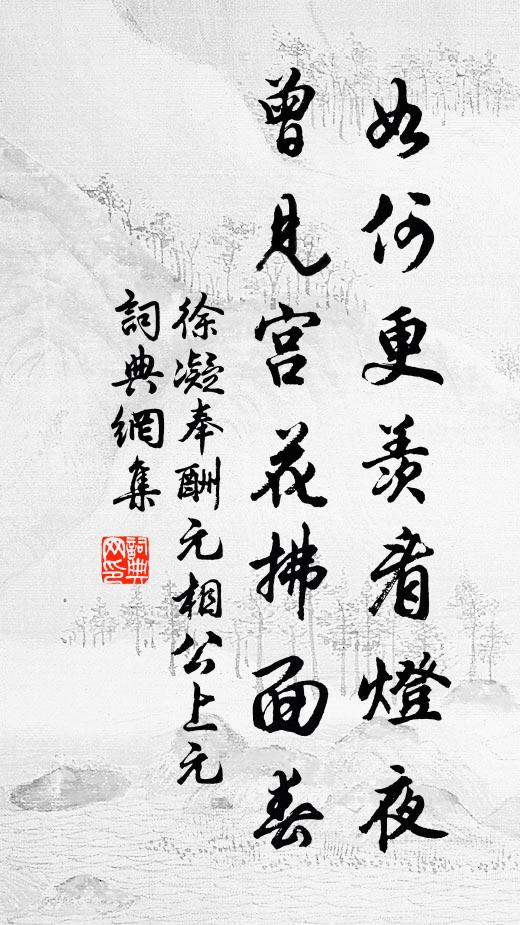 如何更羨看燈夜
曾見宮花拂面春
徐凝奉酬元相公上元
詞典網集
詞典網印